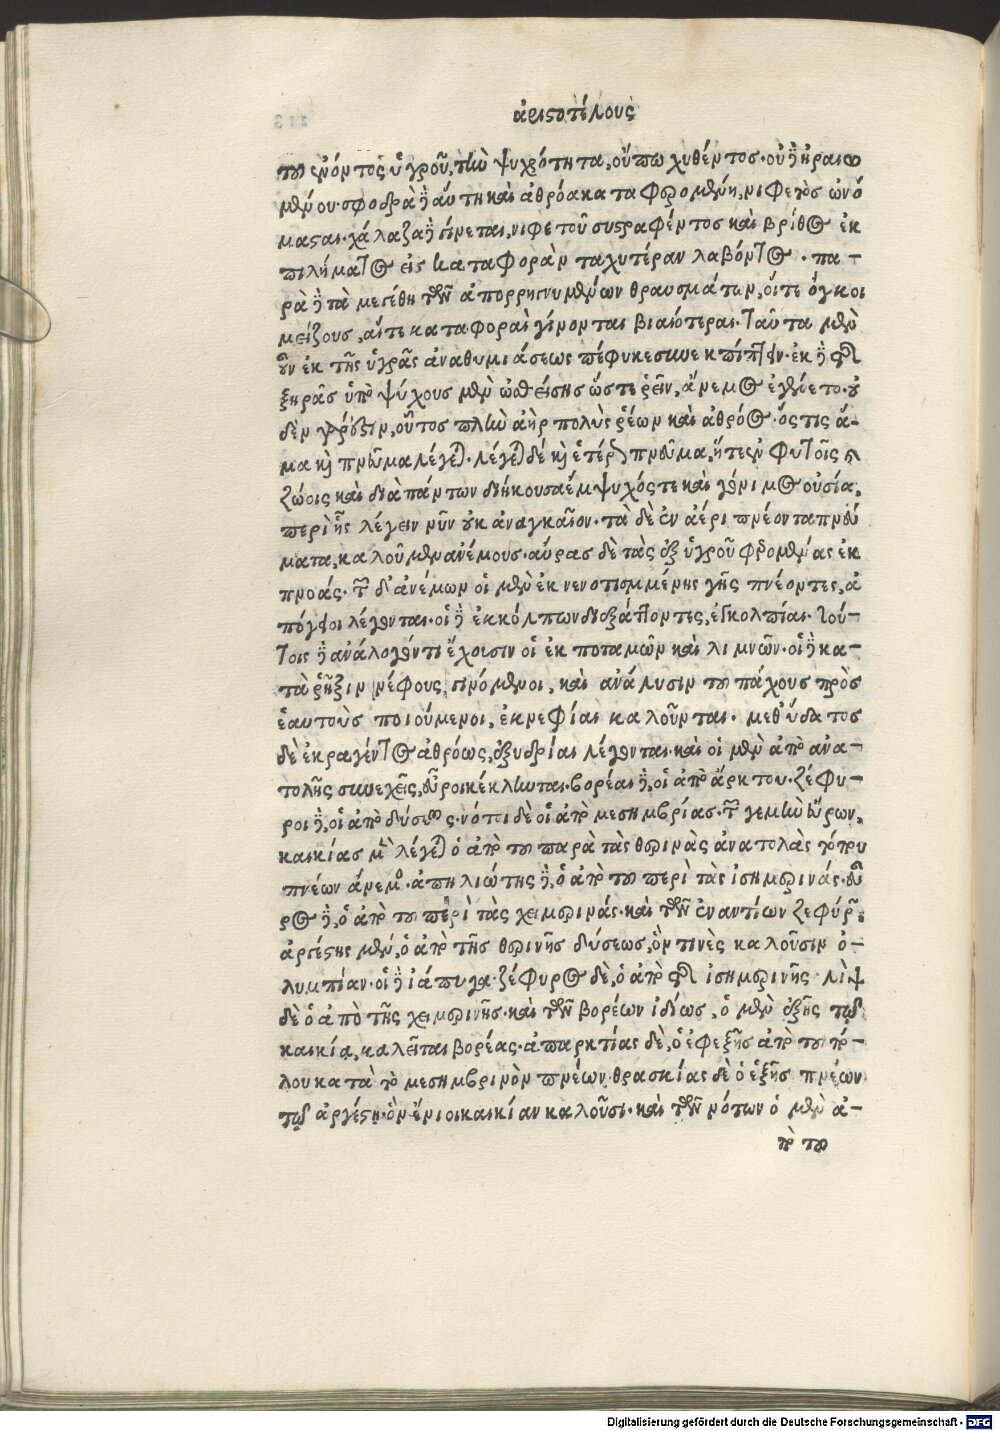 ἀριστοτέλους
του ἐνόντος ὑγροῦ, τὴν ψυχρότητα, οὔπω χυθέντος· οὐδὲ ἠραιω
μένου· σφοδρὰ δὲ αὕτη καὶ ἀθρόα καταφερομένη, νιφετὸς ὠνό
μασαι· χάλαζα δὲ γίνεται, νιφετοῦ συστραφέντος καὶ βρίθος ἐκ
πιλήματος εἰς καταφορὰν ταχυτέραν λαβόντος · πα-
ρὰ δὲ τὰ μεγέθη τῶν ἀπορρηγνυμένων θραυσμάτων, οἵτε ὄγκοι
μείζους, αἵτε καταφοραὶ γίνονται βιαιότεραι· ταῦτα μὲν
οὖν ἐκ τῆς ὑγρᾶς ἀναθυμιάσεως πέφυκε συνεκπίπτειν· ἐκ δὲ τῆς
ξηρᾶς ὑπὸ ψύχους μὲν ὠσθείσης ὥστε ῥεῖν, ἄνεμος ἐγένετο· οὐ
δὲν γὰρ ἐστιν, οὗτος πλὴν ἀὴρ πολὺς ῥέων καὶ ἀθρόος· ὅστις ἅ-
μα καὶ πνεῦμα λέγεται· λέγεται δὲ καὶ ἑτέρως πνεῦμα, ἥτε ἐν φυτοῖς καὶ
ζώοις καὶ διὰ πάντων διήκουσα ἔμψυχός τε καὶ γόνιμος οὐσία,
περὶ ἧς λέγειν νῦν οὐκ ἀναγκαῖον· τὰ δὲ ἐν ἀέρι πνέοντα πνεύ
ματα, καλοῦμεν ἀνέμους· αὔρας δὲ τὰς ἐξ ὑγροῦ φερομένας ἐκ
πνοάς· τῶν δ' ἀνέμων οἱ μὲν ἐκ νενοτισμμένης γῆς πνέοντες, ἀ
πόγειοι λέγονται· οἱ δὲ ἐκ κόλπων διεξάττοντες, ἐγκολπίαι· τού-
τοις δὲ ἀνάλογόν τι ἔχουσιν οἱ ἐκ ποταμῶν καὶ λιμνῶν· οἱ δὲ κα-
τὰ ῥῆξιν νέφους, γινόμενοι, καὶ ἀνάλυσιν του πάχους πρὸς
ἑαυτοὺς ποιούμενοι, ἐκνεφίαι καλοῦνται· μεθ' ὕδατος
δὲ ἐκραγέντος ἀθρόως, ἐξυδρίαι λέγονται· καὶ οἱ μὲν ἀπὸ ἀνα-
τολῆς συνεχεῖς, εὖροι κέκληνται· βορέαι δὲ, οἱ ἀπὸ ἄρκτου· ζέφυ-
ροι δὲ, οἱ ἀπὸ δύσεως· νότοι δὲ οἱ ἀπὸ μεσημβρίας· τῶν γε μὴν εὔρων,
καικίας μὲν λέγεται ὁ ἀπὸ του παρὰ τὰς θερινὰς ἀνατολὰς τόπου
πνέων ἄνεμος· ἀπηλιώτης δὲ, ὁ ἀπὸ του περὶ τὰς ἰσημερινάς· εὖ
ρος δὲ, ὁ ἀπὸ του περὶ τὰς χειμερινάς· καὶ τῶν ἐναντίων ζεφύρων·
ἀργέστης μὲν, ὁ ἀπὸ τῆς θερινῆς δύσεως, ὅν τινὲς καλοῦσιν ὀ-
λυμπίαν· οἱ δὲ ἰάπυγα· ζέφυρος δὲ, ὁ ἀπὸ τῆς ἰσημερινῆς· λὶψ
δὲ ὁ ἀπὸ τῆς χειμερινῆς· καὶ τῶν βορέων ἰδίως, ὁ μὲν ἑξῆς τῷ
καικία, καλεῖται βορέας· ἀπαρκτίας δὲ, ὁ ἐφεξῆς ἀπὸ του πό-
λου κατὰ τὸ μεσημβρινὸν πνέων· θρασκίας δὲ ὁ ἑξῆς πνέων
τῷ ἀργέστῃ· ὃν ἔνιοι καικίαν καλοῦσι· καὶ τῶν νότων ὁ μὲν ἀ-
πὸ του
Digitalisierung gefördert durch die Deutsche Forschungsgemeinschaft - DFG